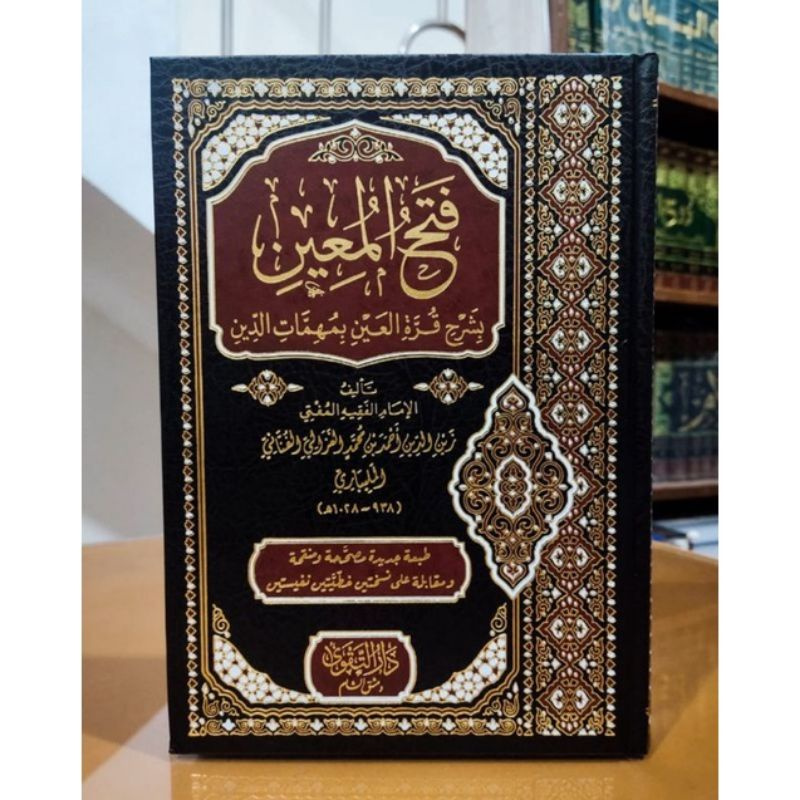 فَتْحُ المُعِينِ
بِشَرْحِ قُرَّةِ العَيْنِ بِمُهِمَّاتِ الدِّينِ
تأليف
الإمام الفقيه المفتي
زين الدين أحمد بن محمد الغزالي الفناني
المليباري
(٩٣٨ - ١٠٢٨ هـ)
طبعة جديدة مصححة ومنقحة
ومقابلة على نسختين خطيتين نفيستين
دار التقوى
دمشق الشام